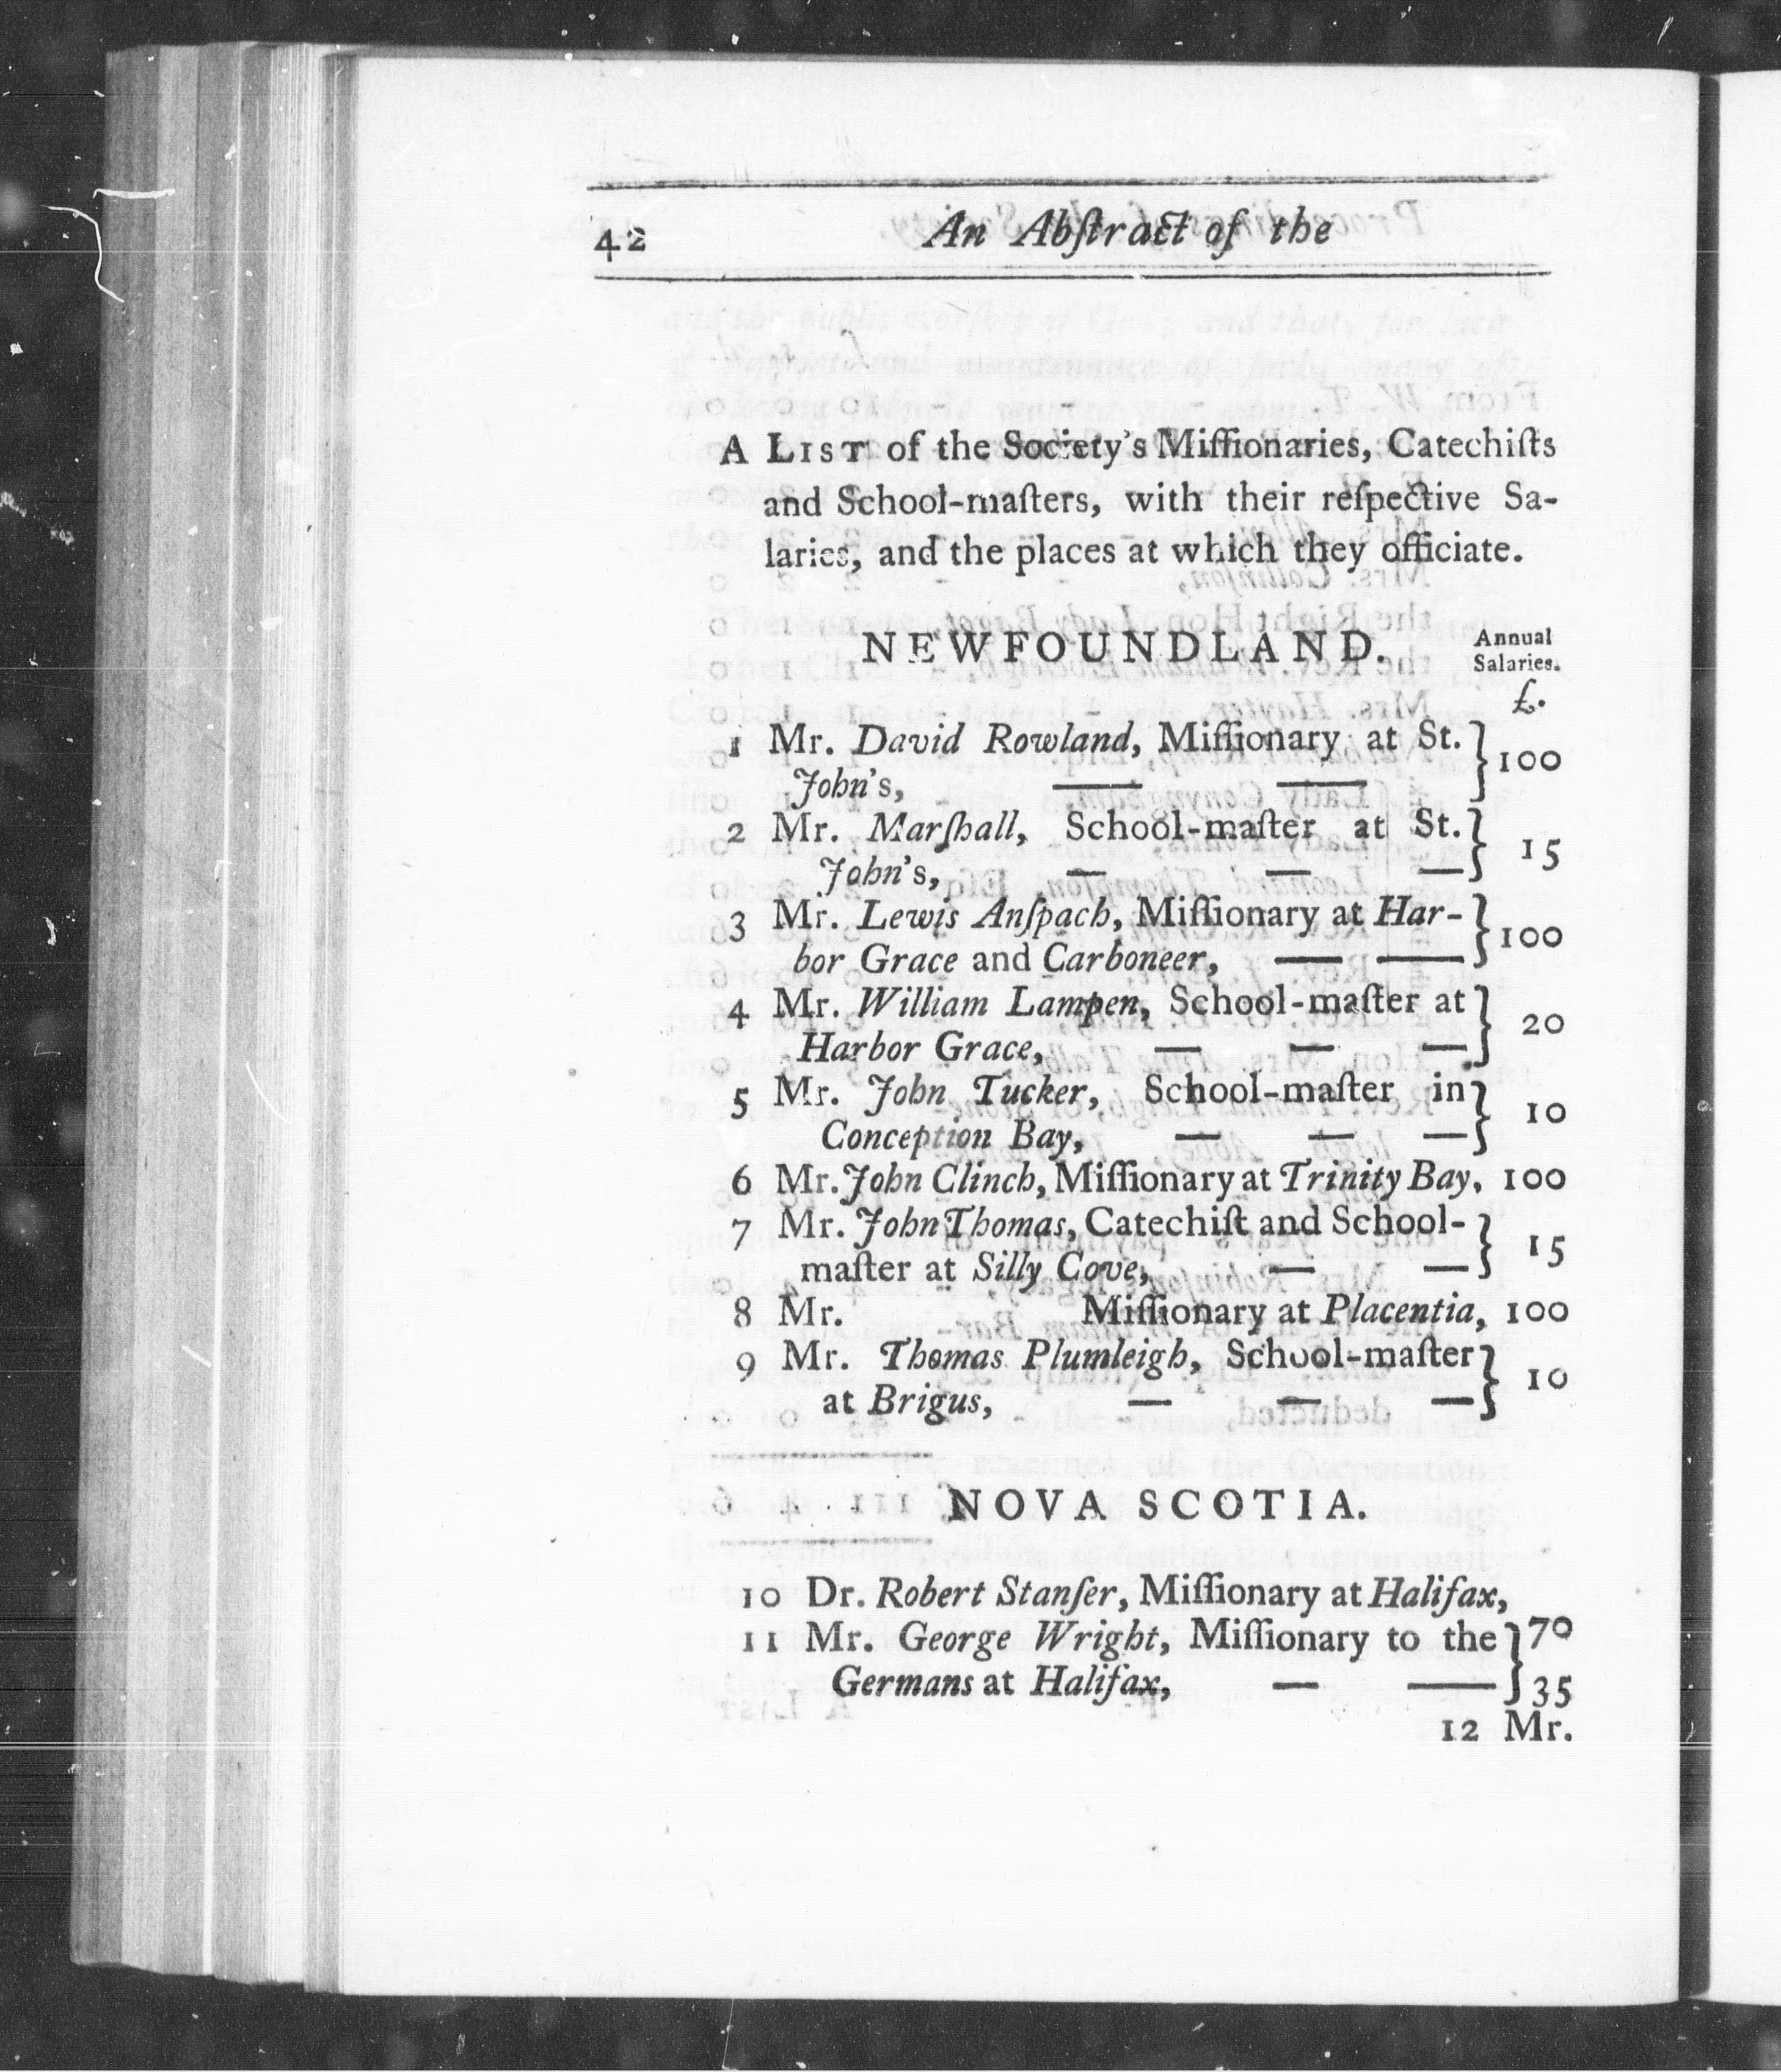 42 An Abſtract of the
A LIST of the Society's Miſſionaries, Catechiſts
and School-maſters, with their reſpective Sa-
laries, and the places at which they officiate.
NEWFOUNDLAND. Annual
Salaries.
£.
1 Mr. David Rowland, Miſſionary at St.
John's, — — } 100
2 Mr. Marſhall, School-maſter at St.
John's, — — — } 15
3 Mr. Lewis Anſpach, Miſſionary at Har-
bor Grace and Carboneer, — — } 100
4 Mr. William Lampen, School-maſter at
Harbor Grace, — — — } 20
5 Mr. John Tucker, School-maſter in
Conception Bay, — — — } 10
6 Mr. John Clinch, Miſſionary at Trinity Bay, 100
7 Mr. John Thomas, Catechiſt and School-
maſter at Silly Cove, — — } 15
8 Mr. Miſſionary at Placentia, 100
9 Mr. Thomas Plumleigh, School-maſter
at Brigus, — — — } 10
NOVA SCOTIA.
10 Dr. Robert Stanſer, Miſſionary at Halifax,
11 Mr. George Wright, Miſſionary to the } 70
Germans at Halifax, — — 35
12 Mr.